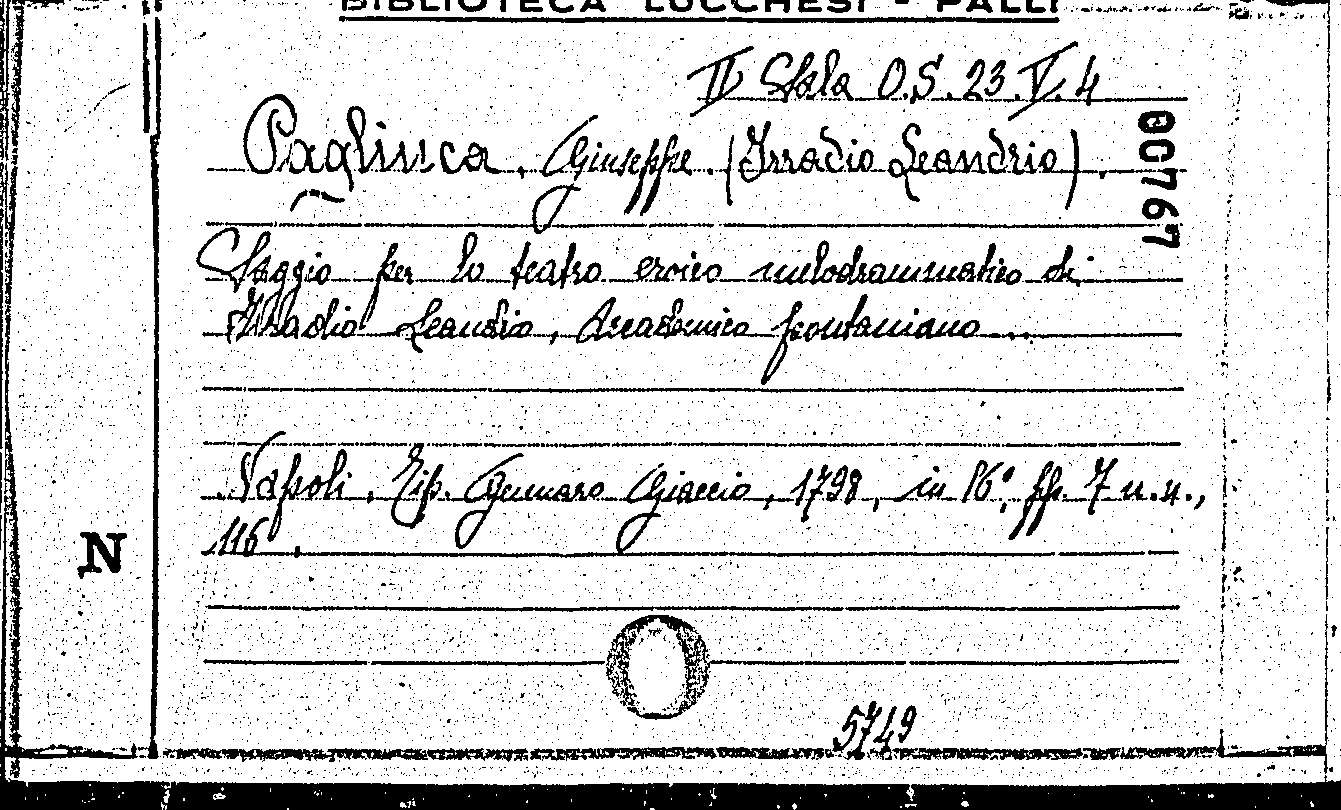 BIBLIOTECA LUCCHESI - PALLI
II Sala O.S. 23.V.4
00767
Pagliuca, Giuseppe. (Irradio Leandrio).
Saggio per lo teatro eroico melodrammatico di
Irradio Leandrio, Accademico fontaniano...
Napoli, Tip. Gennaro Giaccio, 1798, in 16°, pp. 7 n.n.,
116.
N
5749